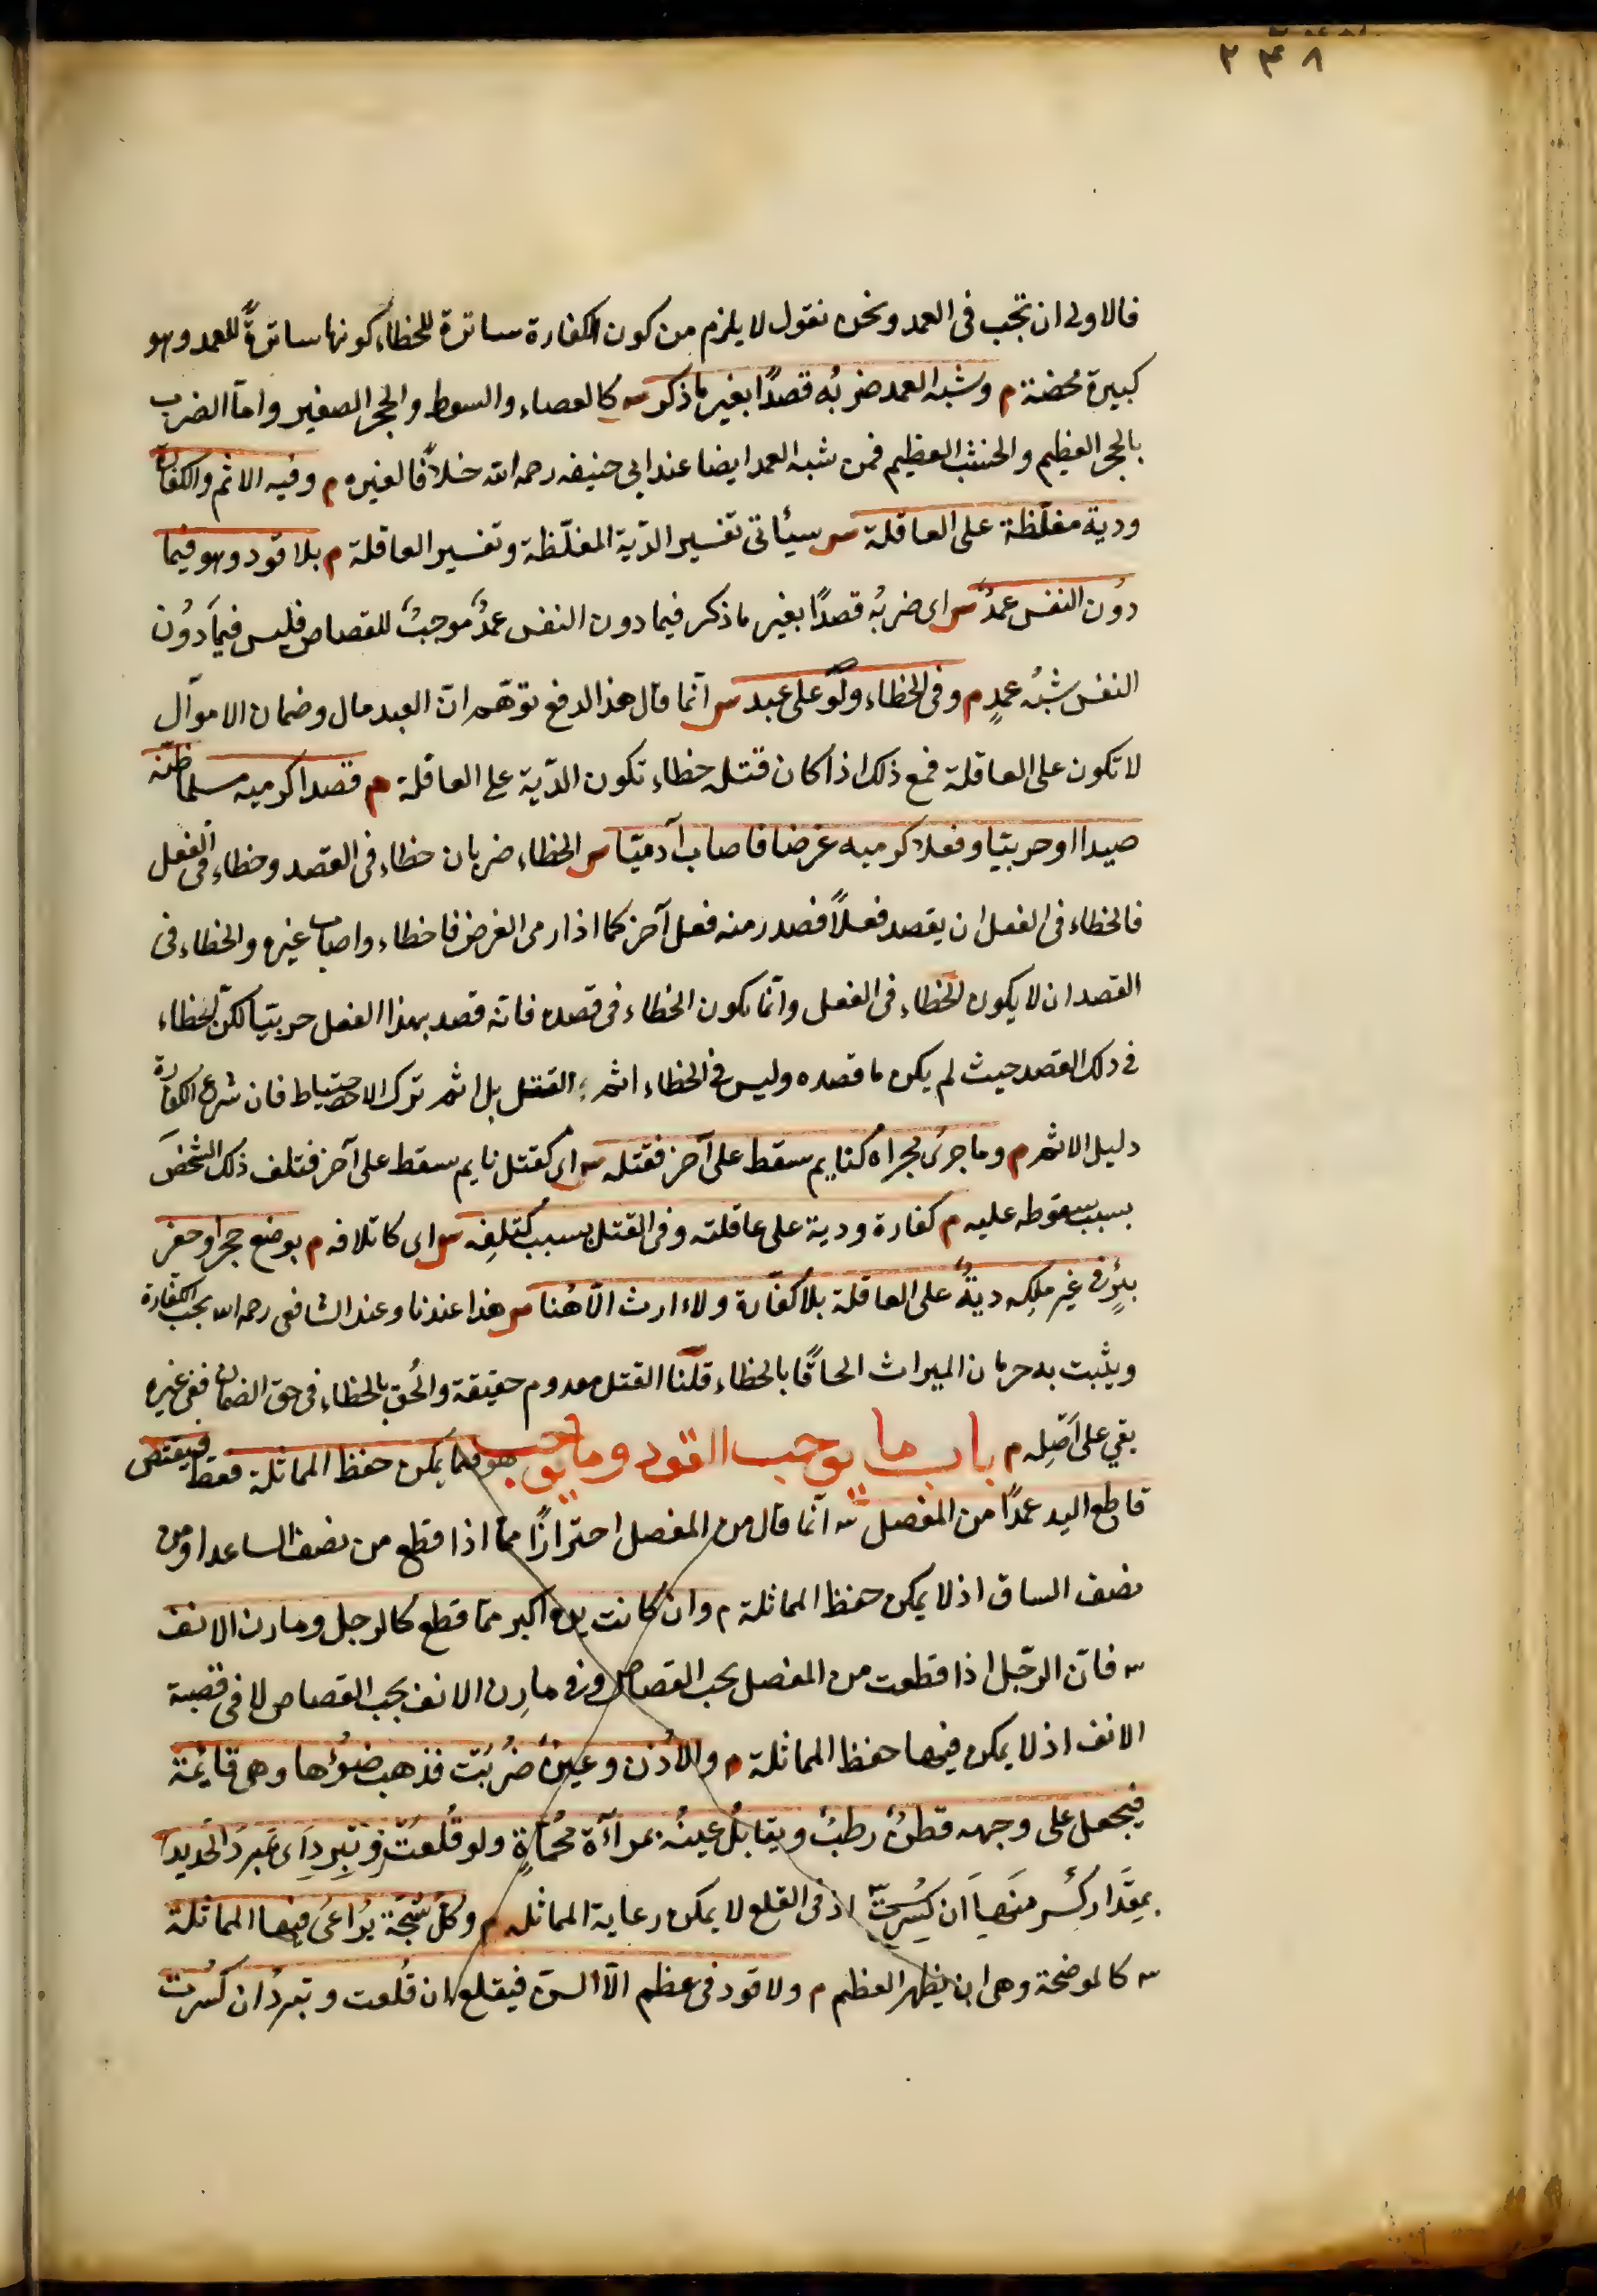 ٢٣٨
فالاولى ان تجب فى العمد ونحن نقول لا يلزم من كون الكفارة ساترة للخطاء كونها ساترةً للعمد وهو
كبيرة محضة م وشبه العمد ضربُه قصدًا بغير ما ذكر س كالعصاء والسوط والحجر الصغير واما الضرب
بالحجر العظيم والخشب العظيم فمن شبه العمد ايضا عند ابى حنيفه رحمه الله خلافًا لغيره م وفيه الاثم والكفارة
ودية مغلّظة على العاقلة س سيأتى تفسير الدّية المغلّظة وتفسير العاقلة م بلا قود وهو فيما
دُون النفس عمدٌ س اى ضربُه قصدًا بغير ما ذكر فيما دون النفس عمدٌ موجبٌ للقصاص فليس فيما دُون
النفس شبُه عمدٍ م وفى الخطاء ولو على عبد س انّما قال هذا الدفع توهّم انّ العبد مال وضمان الاموال
لا تكون على العاقلة فمع ذلك اذا كان قتله خطاء تكون الدّية على العاقلة م قصدا كرميه مسلما ظنّه
صيدا او حربيّا وفعلا كرميه غرضا فاصاب آدميّا س الخطاء ضربان خطاء فى القصد وخطاء فى الفعل
فالخطاء فى الفعل ان يقصد فعلاً فصدر منه فعل آخر كما اذا رمى الغرض فاخطاء واصاب غيره والخطاء فى
القصد ان لا يكون الخطاء فى الفعل وانّما يكون الخطاء فى قصده فانّه قصد بهذا الفعل حربيّا لكنّ الخطاء
فى ذلك القصد حيث لم يكن ما قصده وليس فى الخطاء اثم القتل بل اثم ترك الاحتياط فان شرع الكفارة
دليل الاثم م وما جرىٰ مجراه كنايم سقط على آخر فقتله س اى كقتل نايم سقط على آخر فتلف ذلك الشخص
بسبب سقوطه عليه م كفارة ودية على عاقلته وفى القتل بسبب كتلفِه س اى كاتلافه م بوضع حجر او حفر
بئرٍ فى غير ملكِه ديةٌ على العاقلة بلا كفّارة ولا ارث الّا هُنا س هذا عندنا وعند الشافعى رحمه الله يجب الكفّارة
ويثبت به حرمان الميراث الحاقًا بالخطاء قلنا القتل معدوم حقيقة والُحق بالخطاء فى حق الضمان ففى غيره
بقى على اَصْلِه م باب ما يوجب القود وما لا يوجب هو فيما يمكن حفظ المماثلة فقط فيقتص
قاطع اليد عمدًا من المفصل س انّما قال من المفصل احترازًا ممّا اذا قطع من نصف الساعد او من
نصف الساق اذ لا يمكن حفظ المماثلة م وان كانت يده اكبر ممّا قطع كالرجل ومارن الانف
س فانّ الرّجل اذا قطعت من المفصل يجب القصاص وفى مارِن الانف يجب القصاص لا فى قصبة
الانف اذ لا يمكن فيها حفظ المماثلة م والاُذن وعينٌ ضُربَت فذهب ضوُؤها وهى قايمة
فيجعل على وجهه قطنٌ رطبٌ ويقابلُ عينُه بمرآة مُحْماةٍ ولو قُلعَت
بمقدار كسر منها ان كُسرت س اذ فى القلع لا يمكن رعاية المماثله م وكلّ شَجّة يُراعىٰ فيها المماثلة
س كالموضحة وهى ان يظهر العظم م ولا قود فى عظم الّا السنّ فيقلع ان قُلعت وتبردُ ان كُسرت